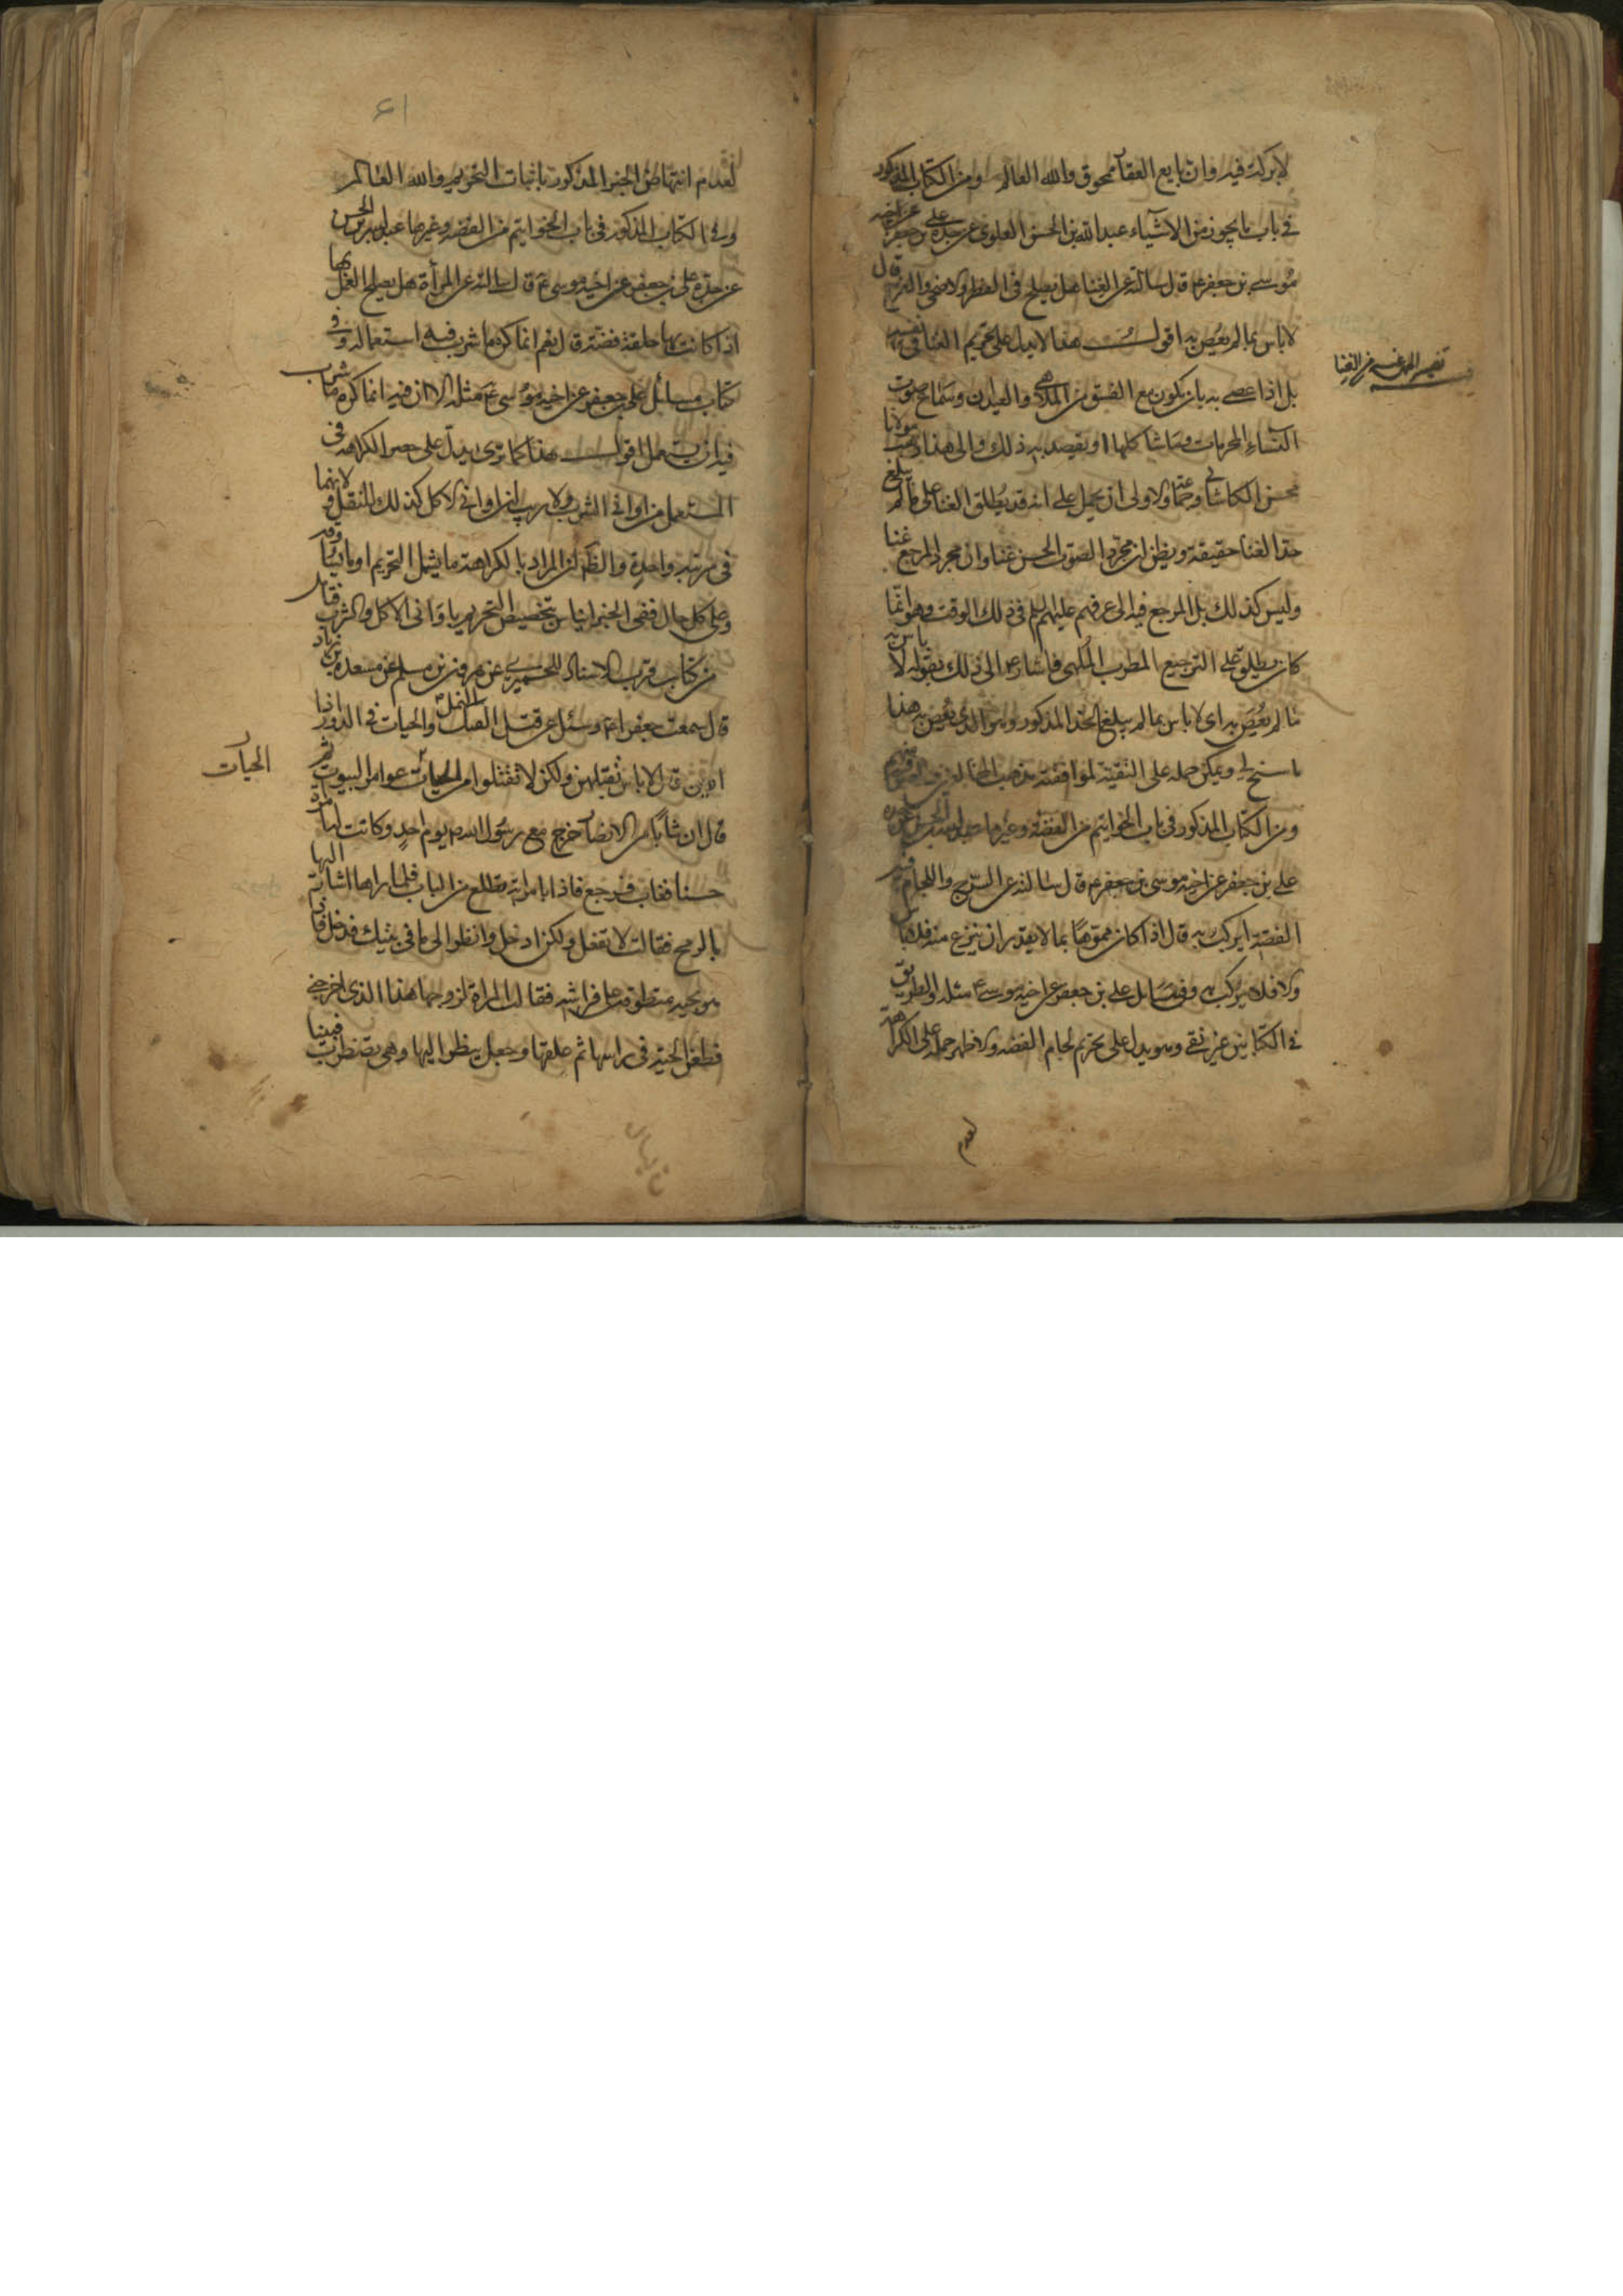 لا بركة فيه وان بايع العقار ممحوق والله العالم ومن الكتاب المذكور
في باب ما يجوز من الاشياء عبد الله بن الحسن العلوي عن جده علي بن جعفر عن اخيه
موسى بن جعفر ع قال سالته عن الغنا هل يصلح في الفطر والاضحى والفرح قال
لا باس بما لم يعص به اقول هذا لا يدل على تحريم الغنا في نفسه
بل اذا عصي به بان يكون مع الفسق من الملاهي والعيدان وسماع صوت
النساء المحرمات وما شاكلها او يقصد به ذلك والى هذا ذهب مولانا
محسن الكاشاني وجماعة والاولى ان يحمل على انه قد يطلق الغنا على ما لم يبلغ
حد الغنا حقيقة ويظن ان مجرد الصوت الحسن غنا وان مجرد المرجع غنا
وليس كذلك بل المرجع فيه الى عرفهم عليهم السلم في ذلك الوقت وهو انما
كان يطلق على الترجيع المطرب الملهي فاشار ع الى ذلك بقوله لا باس به
ما لم يعص به اي لا باس بما لم يبلغ الحد المذكور وهو الذي يعص به هذا
ما سنح لي ويمكن حمله على التقية لموافقته مذهب
ومن الكتاب المذكور في باب الخواتيم من الفضة وغيرها عبد الله بن الحسن عن جده
علي بن جعفر عن اخيه موسى بن جعفر ع قال سالته عن السرج واللجام فيه
الفضة ايركب به قال اذا كان مموها بما لا يقدر ان ينزع منه فلا باس
والا فلا يركب به وفي مسايل علي بن جعفر عن اخيه موسى ع مثله والطريق
في الكتابين عن ثقة وهو يدل على تحريم لجام الفضة والاظهر حمله على الكراهة
لعدم
تفسير المراد من الغنا
٦١
لعدم انتهاض الخبر المذكور باثبات التحريم والله العالم
وفي الكتاب المذكور في باب الخواتيم من الفضة وغيرها عبد الله بن الحسن
عن جده علي بن جعفر عن اخيه موسى ع قال سالته عن المرأة هل يصلح العمل بها
اذا كانت لها حلقة فضة قال نعم انما كره ما شرب فيه استعماله وفي
كتاب مسائل علي بن جعفر عن اخيه موسى ع مثله الا ان فيه انما كره ما شرب
فيه ان يستعمل اقول هذا كما ترى يدل على حصر الكراهة في
المستعمل من اواني الشرب ولا ريب ان اواني الاكل كذلك لانهما
في مرتبة واحدة والظ ان المراد بالكراهة ما يشمل التحريم
وعلى كل حال ففي الخبر ايناس بتخصيص التحريم باواني الاكل والشرب
من كتاب قرب الاسناد للحميري عن هرون بن مسلم عن مسعدة بن زياد
قال سمعت جعفرا ع وسئل عن قتل النمل والحيات في الدور اذا
اذين قال لا باس بقتلهن ولكن لا تقتلوا من الحيات عوامر البيوت ثم
قال ان شابا من الانصار خرج مع رسول الله ص يوم احد وكانت له امراة
حسنا فغاب فرجع فاذا بامراته تطلع من الباب فلما راها اشار اليها
بالرمح فقالت لا تفعل ولكن ادخل وانظر الى ما في بيتك فدخل فاذا
هو بحية متطوقة على فراشه فقالت المراة لزوجها هذا الذي اخرجني
فطعن الحية في راسها ثم علقها وجعل ينظر اليها وهي تضطرب فبينا
الحيات